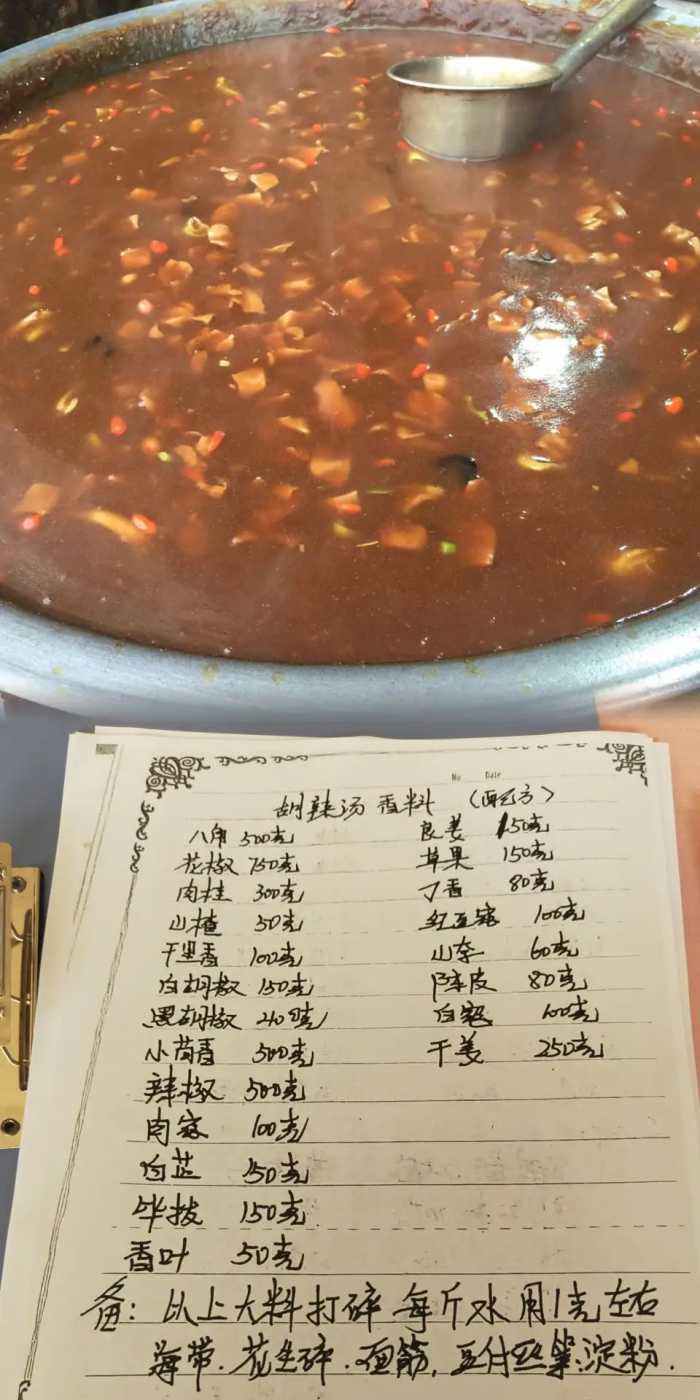 No Date
胡辣汤 香料 (配方)
八角 500克 良姜 150克
花椒 750克 草果 150克
肉桂 300克 丁香 80克
山楂 50克 红豆寇 100克
千里香 100克 山奈 60克
白胡椒 150克 陈皮 80克
黑胡椒 克 白寇 100克
小茴香 500克 干姜 250克
辣椒 500克
肉寇 100克
白芷 150克
毕拔 150克
香叶 50克
备: 以上大料打碎 每斤水用1克左右
海带.花生碎.面筋.豆付丝等.淀粉.